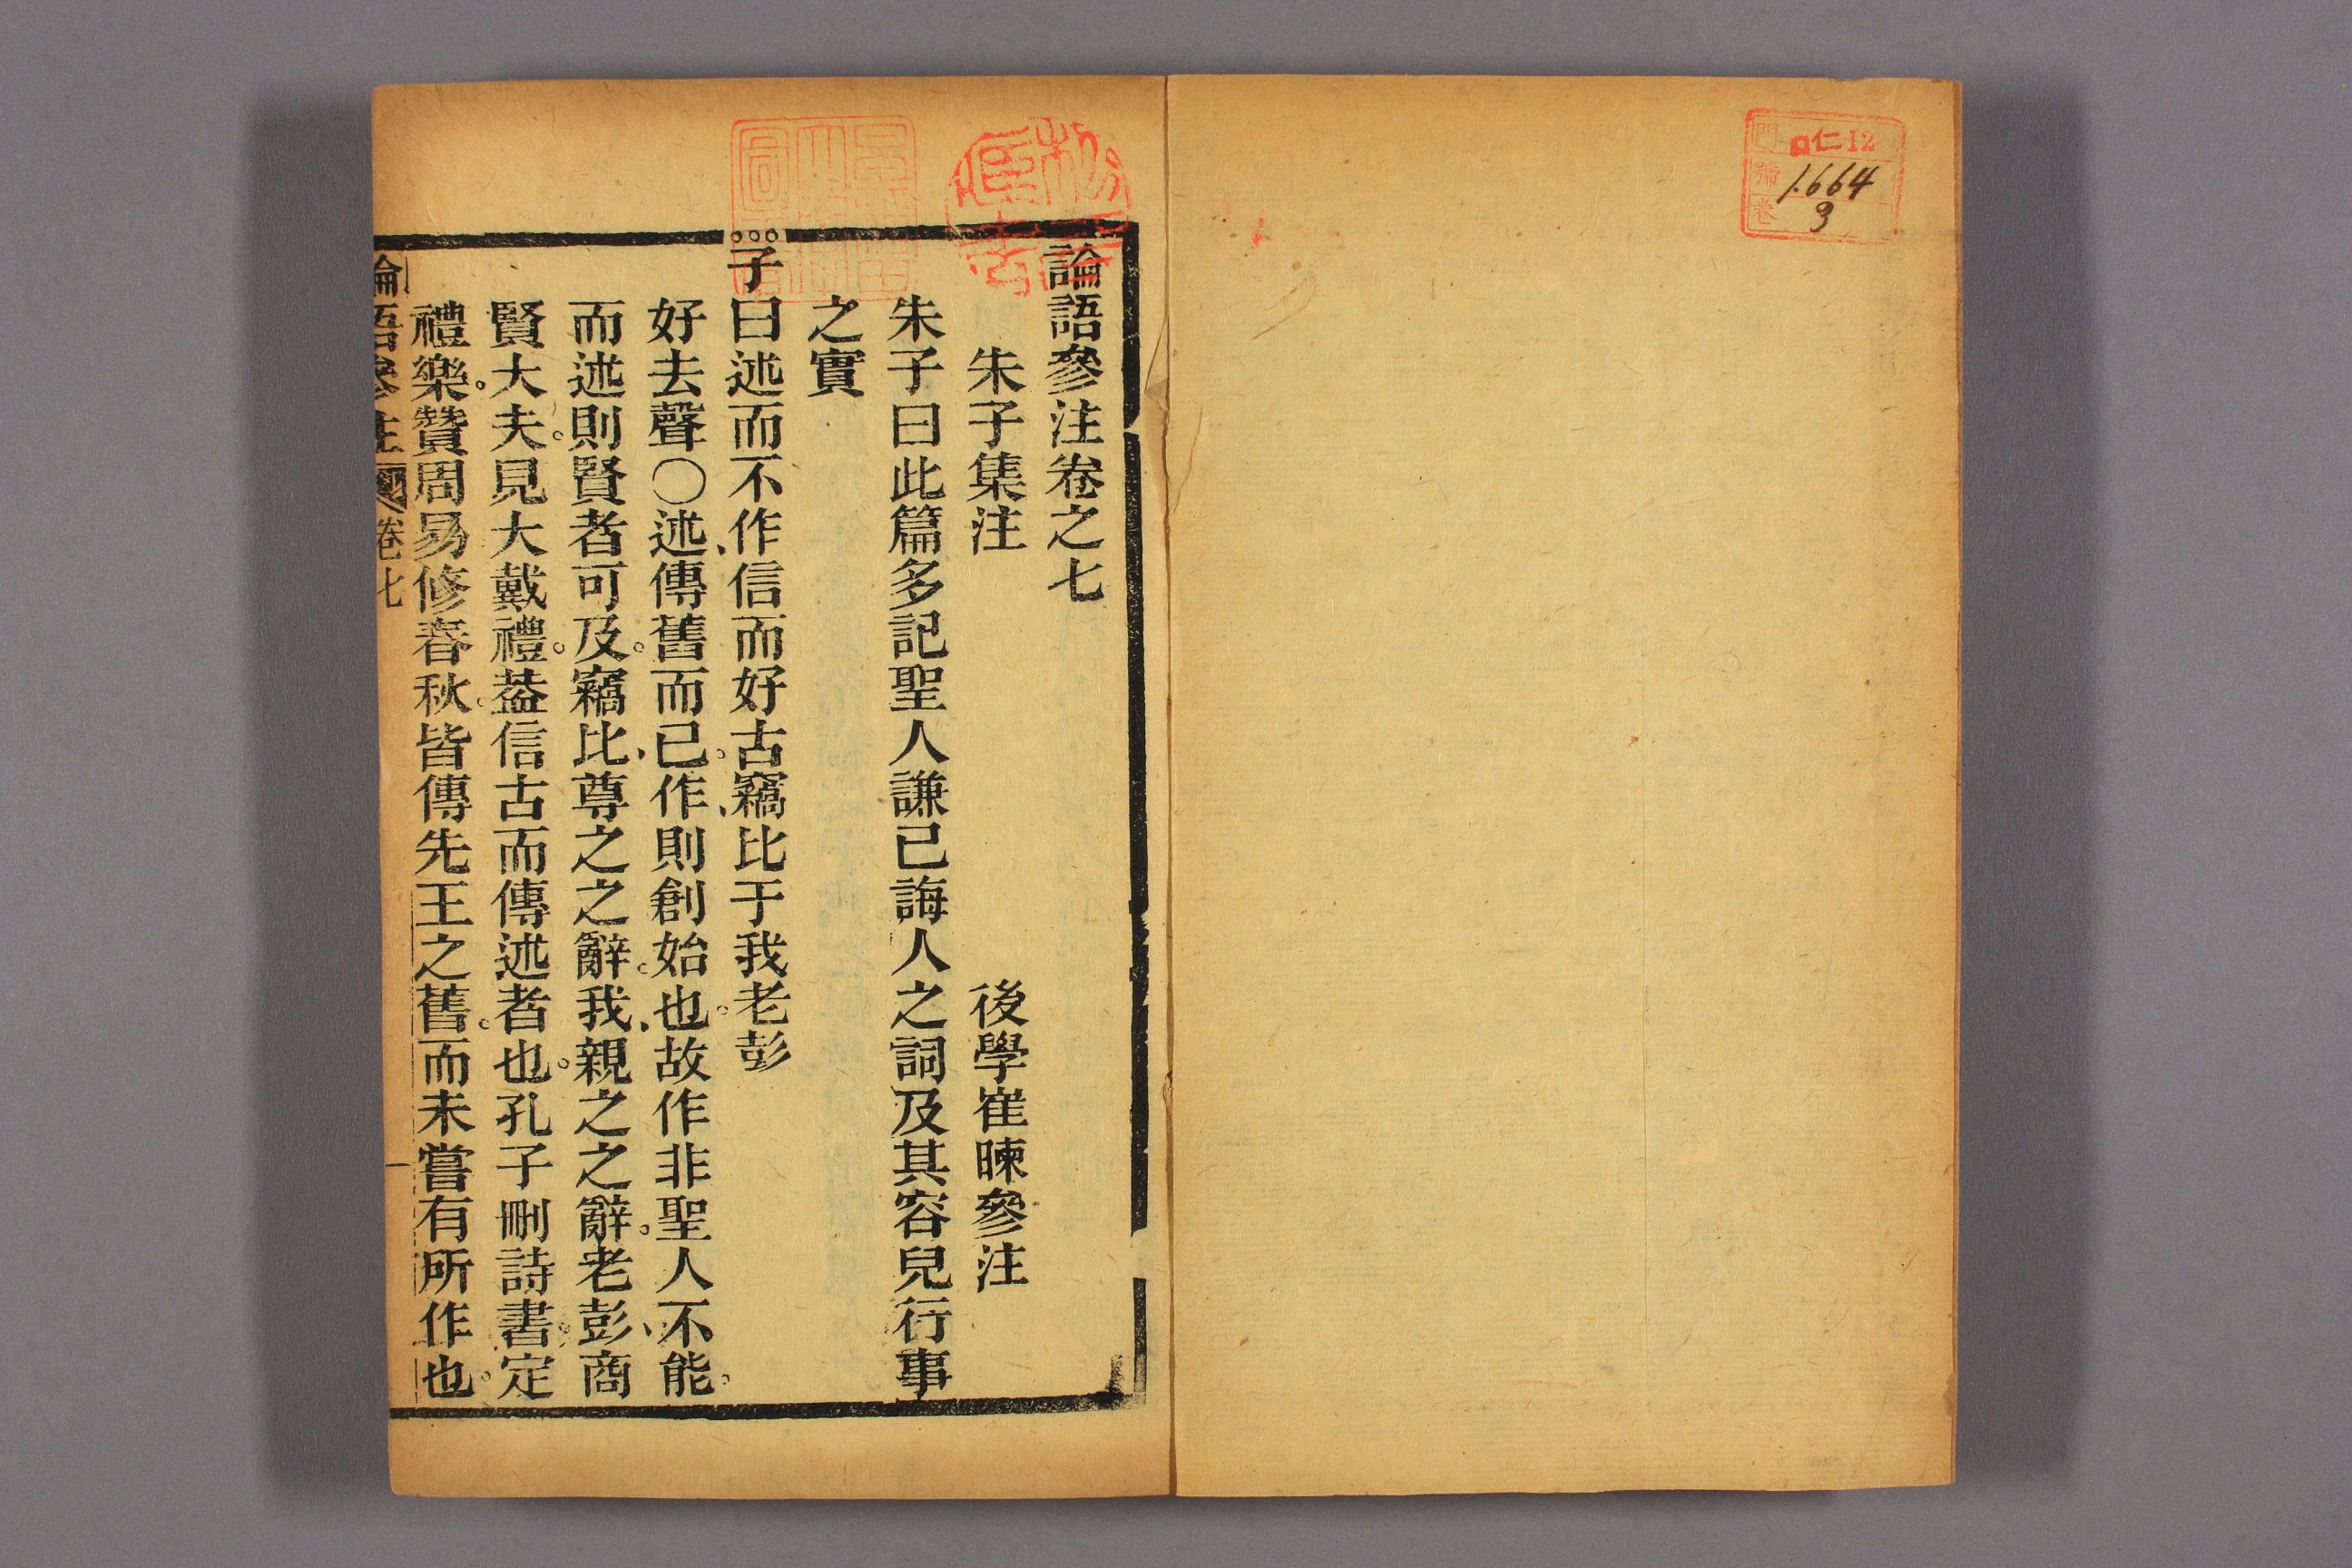 仁 12
1.664
3
論語參注卷之七
朱子集注 後學崔暕參注
朱子曰此篇多記聖人謙已誨人之詞及其容皃行事
之實
子曰述而不作信而好古竊比于我老彭
好去聲○述傳舊而已。作則創始也。故作非聖人不能。
而述則賢者可及。竊比、尊之之辭。我、親之之辭。老彭、商
賢大夫。見大戴禮。葢信古而傳述者也。孔子刪詩書。定
禮樂。贊周易修春秋。皆傳先王之舊。而未嘗有所作也。
論語參注 卷七 一